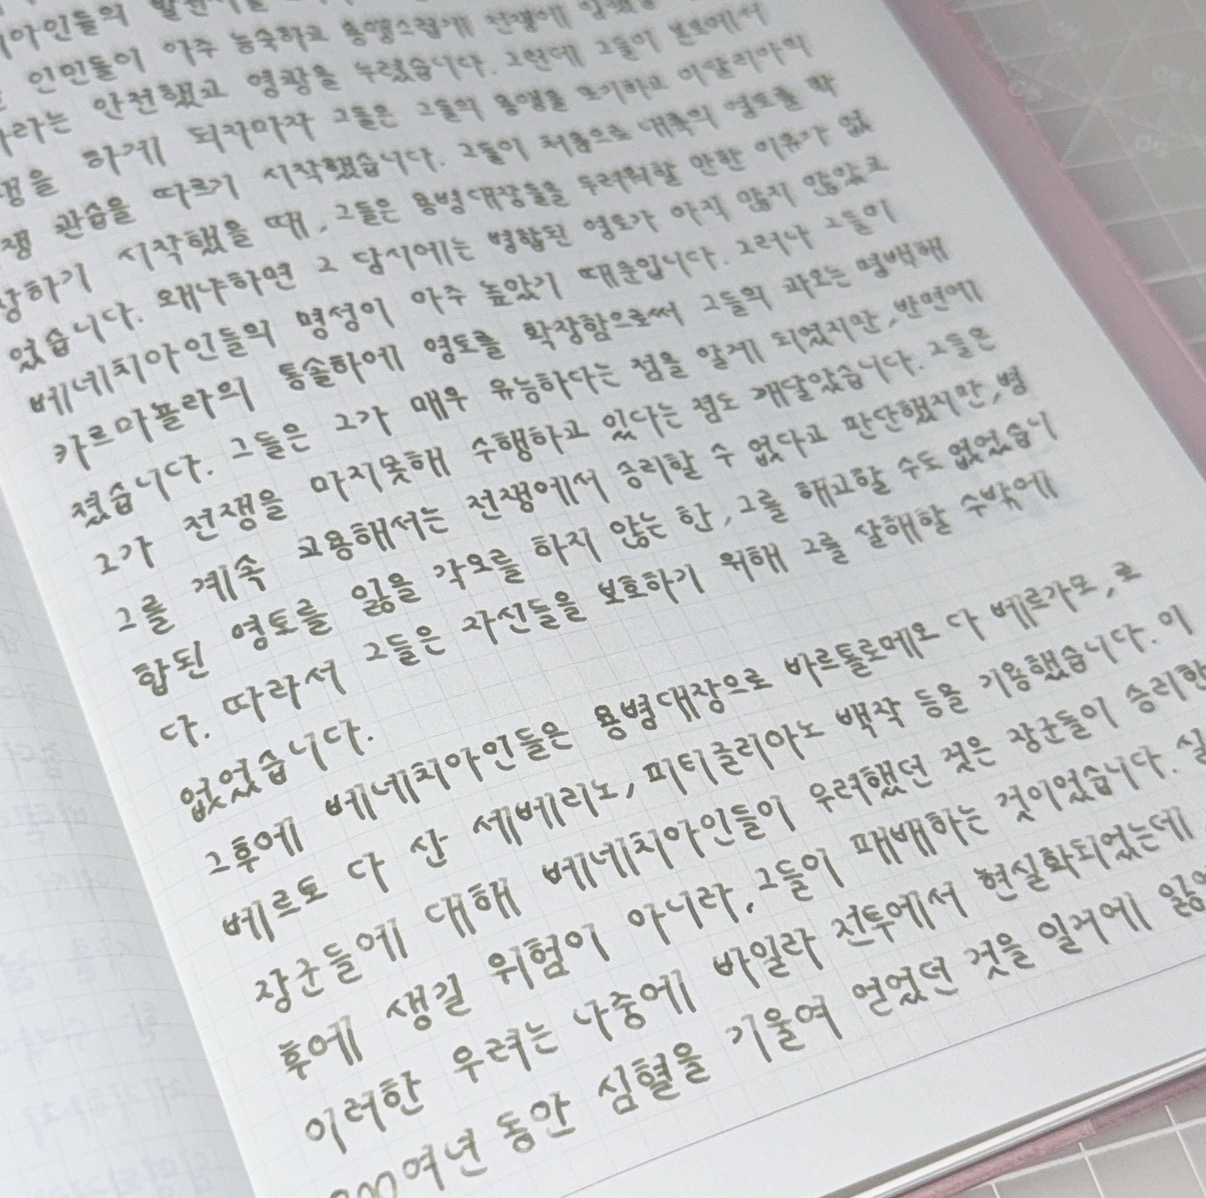 아인들의 발전
인민들이 아주 능숙하고 용맹스럽게 전쟁에
라는 안전했고 영광을 누렸습니다. 그런데 그들이 본토에서
쟁을 하게 되자마자 그들은 그들의 용맹을 포기하고 이탈리아의
쟁 관습을 따르기 시작했습니다. 그들이 처음으로 대륙의 영토를 확
상하기 시작했을 때, 그들은 용병대장들을 두려워할 만한 이유가 없
었습니다. 왜냐하면 그 당시에는 병합된 영토가 아직 많지 않았고
베네치아인들의 명성이 아주 높았기 때문입니다. 그러나 그들이
카르마뇰라의 통솔하에 영토를 확장함으로써 그들의 과오는 명백해
졌습니다. 그들은 그가 매우 유능하다는 점을 알게 되었지만, 반면에
그가 전쟁을 마지못해 수행하고 있다는 점도 깨달았습니다. 그들은
그를 계속 고용해서는 전쟁에서 승리할 수 없다고 판단했지만, 병
합된 영토를 잃을 각오를 하지 않는 한, 그를 해고할 수도 없었습니
다. 따라서 그들은 자신들을 보호하기 위해 그를 살해할 수밖에
없었습니다.
그후에 베네치아인들은 용병대장으로 바르톨로메오 다 베르가모, 로
베르토 다 산 세베리노, 피티글리아노 백작 등을 기용했습니다. 이
장군들에 대해 베네치아인들이 우려했던 것은 장군들이 승리한
후에 생길 위험이 아니라, 그들이 패배하는 것이었습니다. 실
이러한 우려는 나중에 바일라 전투에서 현실화되었는데
00여년 동안 심혈을 기울여 얻었던 것을 일거에 잃